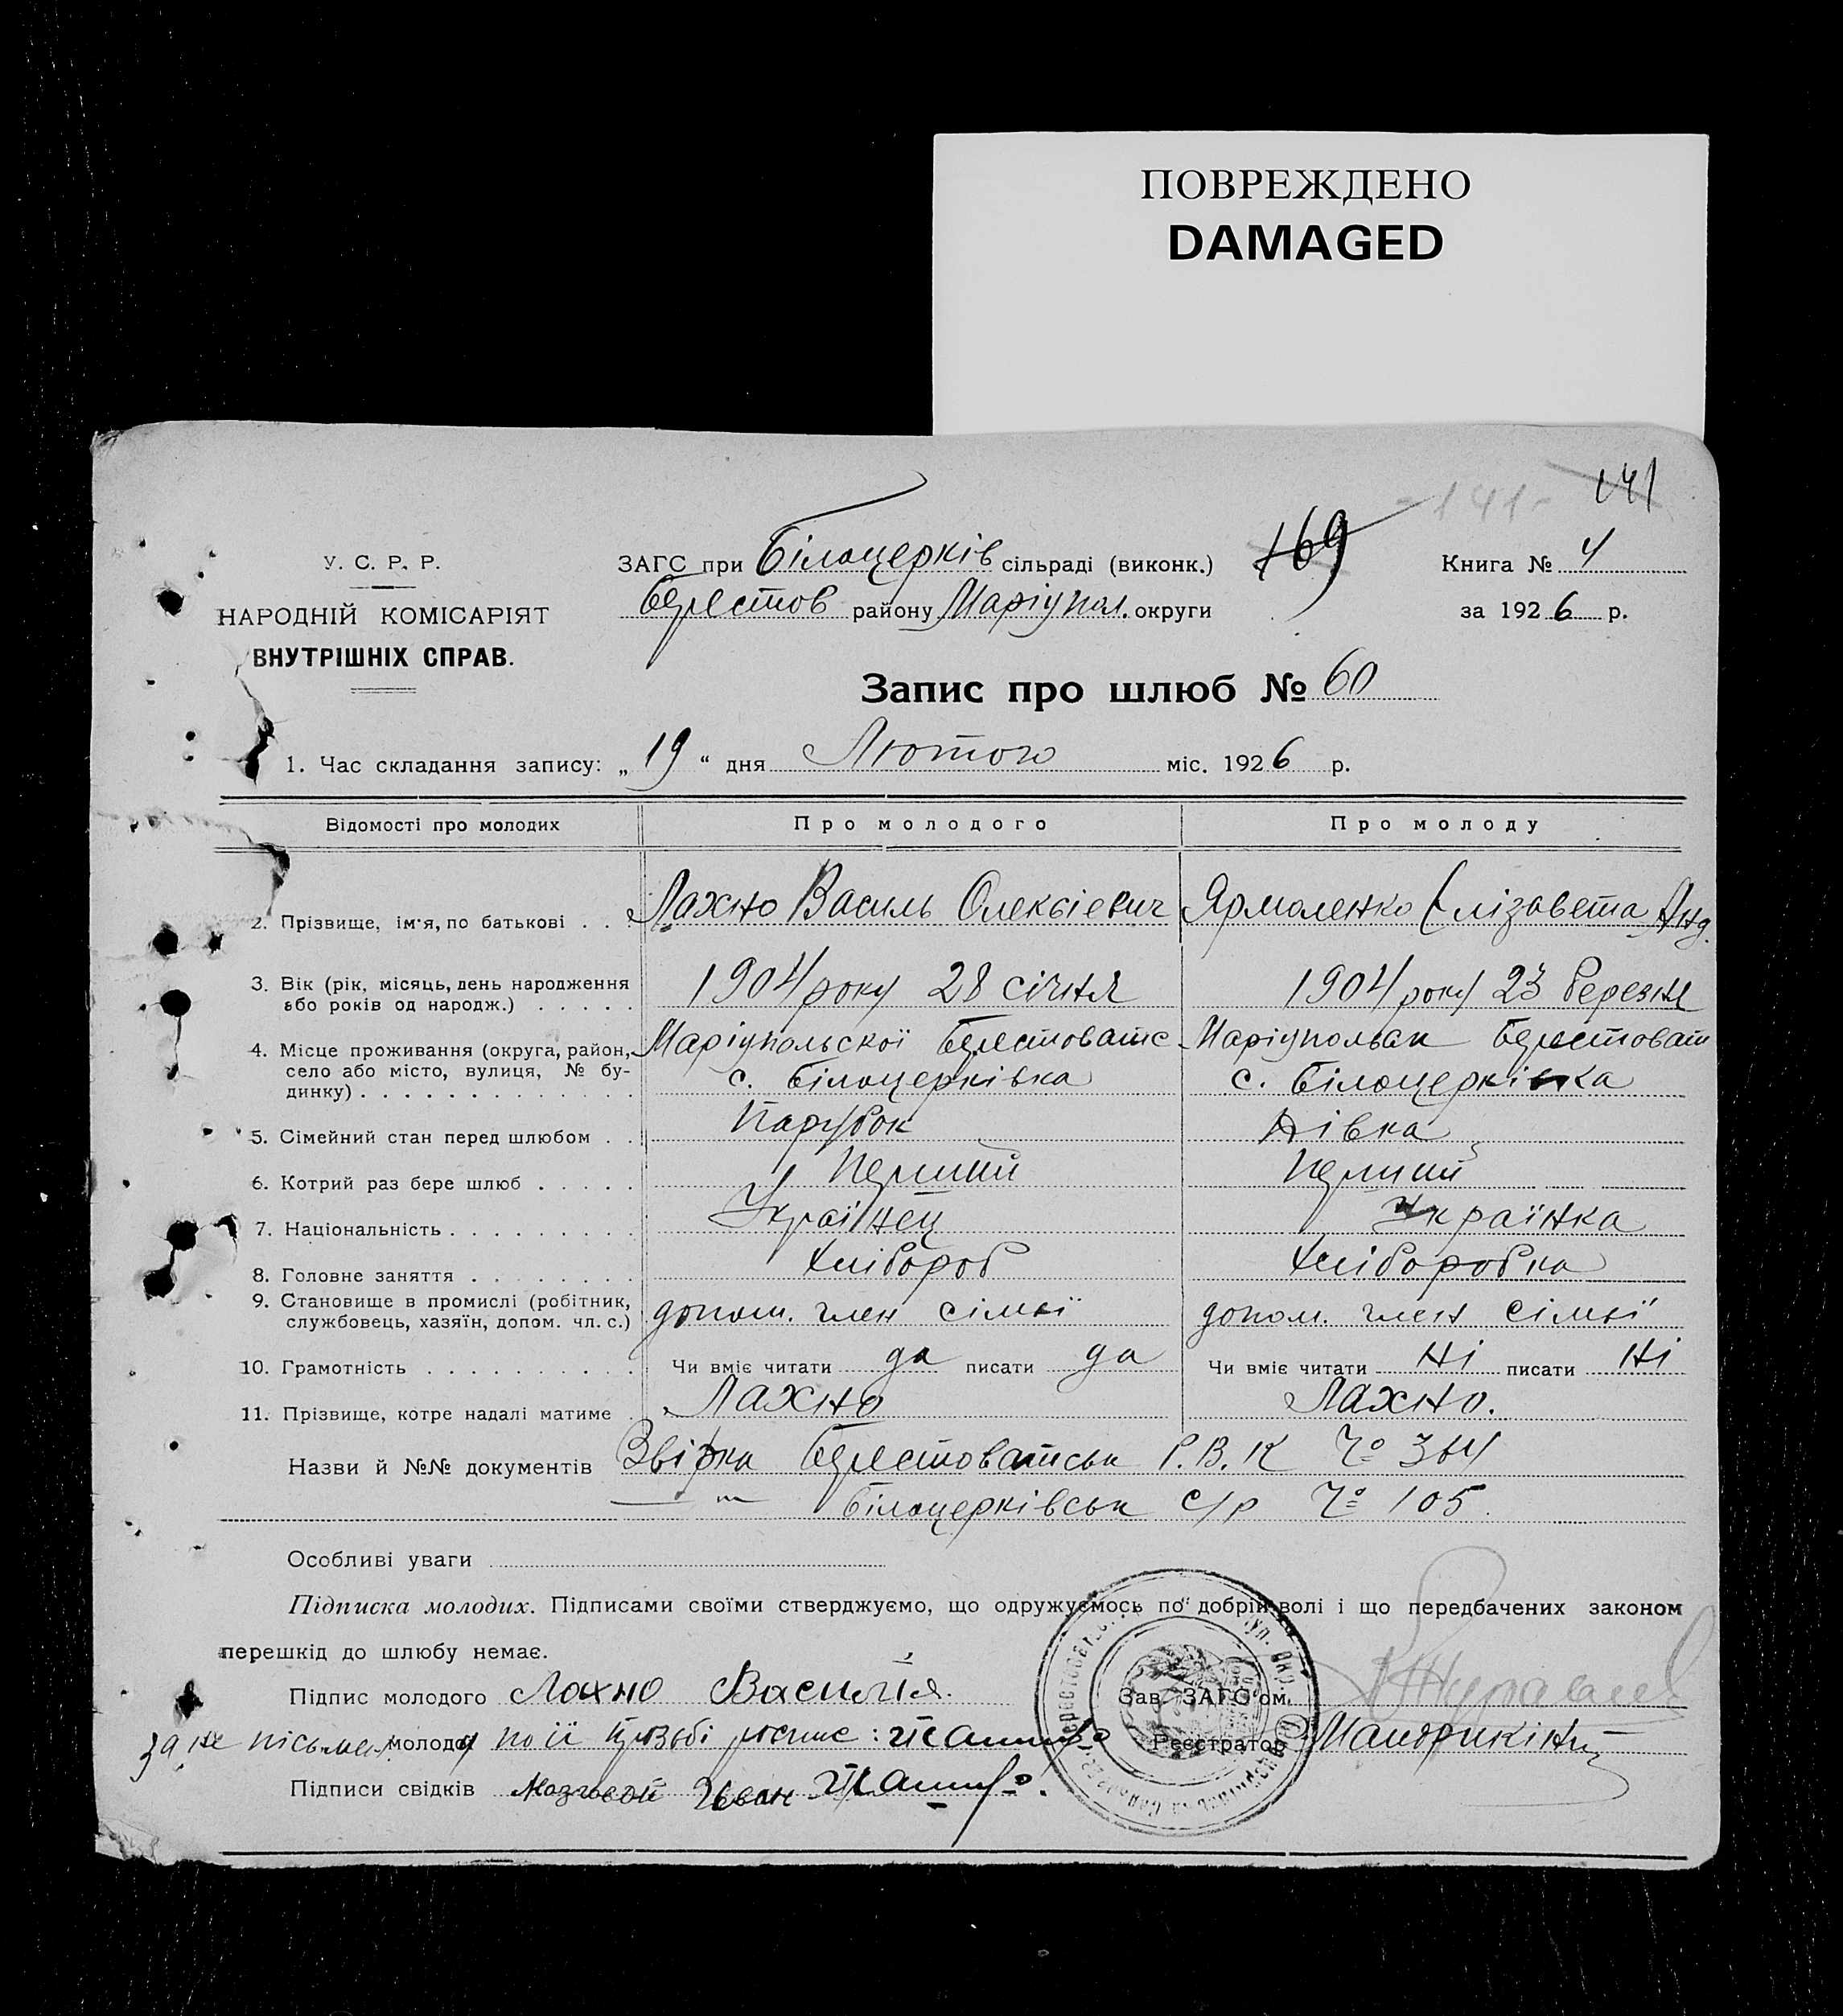 ПОВРЕЖДЕНО
DAMAGED
141
-141-
У. С. Р. Р.
НАРОДНІЙ КОМІСАРІЯТ
ВНУТРІШНІХ СПРАВ.
ЗАГС при Білоцерків сільраді (виконк.)
Берестов району Маріупол. округи
169
Книга № 4
за 1926 р.
Запис про шлюб № 60
1. Час складання запису: „19“ дня Лютого міс. 1926 р.
Відомості про молодих Про молодого Про молоду
2. Прізвище, ім'я, по батькові . . . Лахно Василь Олексієвич Ярмоленко Єлізавета Анд.
3. Вік (рік, місяць, день народження або років од народж.) . . . . . 1904 року 28 січня 1904 року 23 березня
4. Місце проживання (округа, район, село або місто, вулиця, № будинку) . . . Маріупольскої Берестоватс с. Білоцерківка Маріупольск Берестоват с. Білоцерківка
5. Сімейний стан перед шлюбом . . Парубок Дівка
6. Котрий раз бере шлюб . . . . . Перший Перший
7. Національність . . . . . . . . . Українец Українка
8. Головне заняття . . . . . . . . Хлібороб Хліборобка
9. Становище в промислі (робітник, службовець, хазяїн, допом. чл. с.) допом. член сімьї допом. член сімьї
10. Грамотність . . . . . . . . . . Чи вміє читати да писати да Чи вміє читати Ні писати Ні
11. Прізвище, котре надалі матиме . Лахно Лахно.
Назви й №№ документів Звірка Берестоватськ Р.В.К № 364
— " — Білоцерківськ с/р № 105.
Особливі уваги
Підписка молодих. Підписами своїми стверджуємо, що одружуємось по добрій волі і що передбачених законом
перешкід до шлюбу немає.
Підпис молодого Лахно Василія. Зав. ЗАГС'ом
за не письмен. молоду по її прозьбі роспис: Реєстратор
Підписи свідків Мозговой Иван